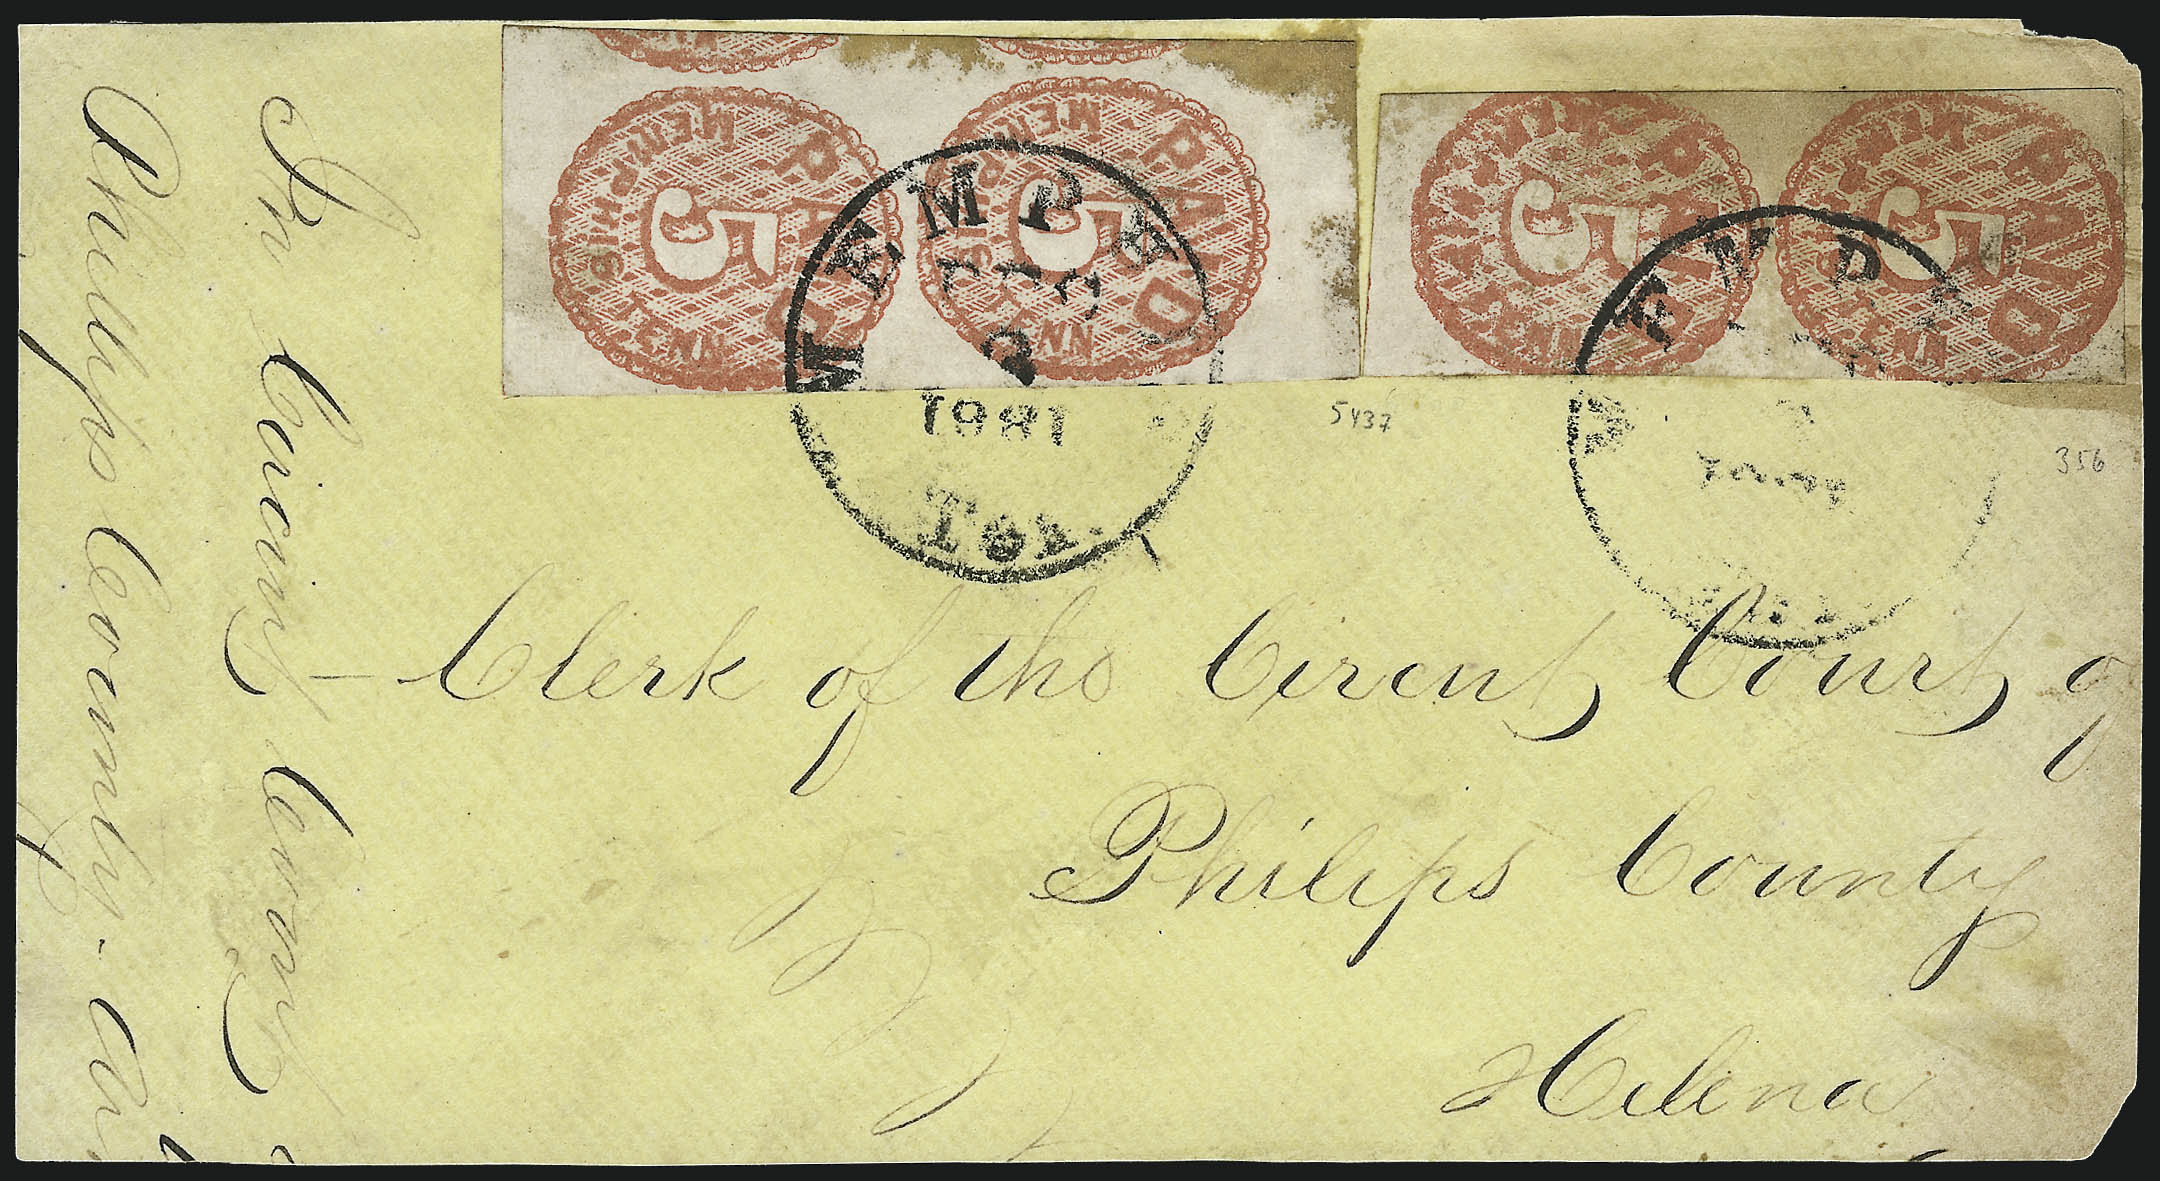 PAID
5
MEMPHIS
TENN
PAID
5
MEMPHIS
TENN
PAID
5
TENN
PAID
5
TENN
MEMPH
DEC
1861
TEN
5437
356
In Circuit Court
Phillips County - Ar
Clerk of the Circuit Court of
Philips County
Helena